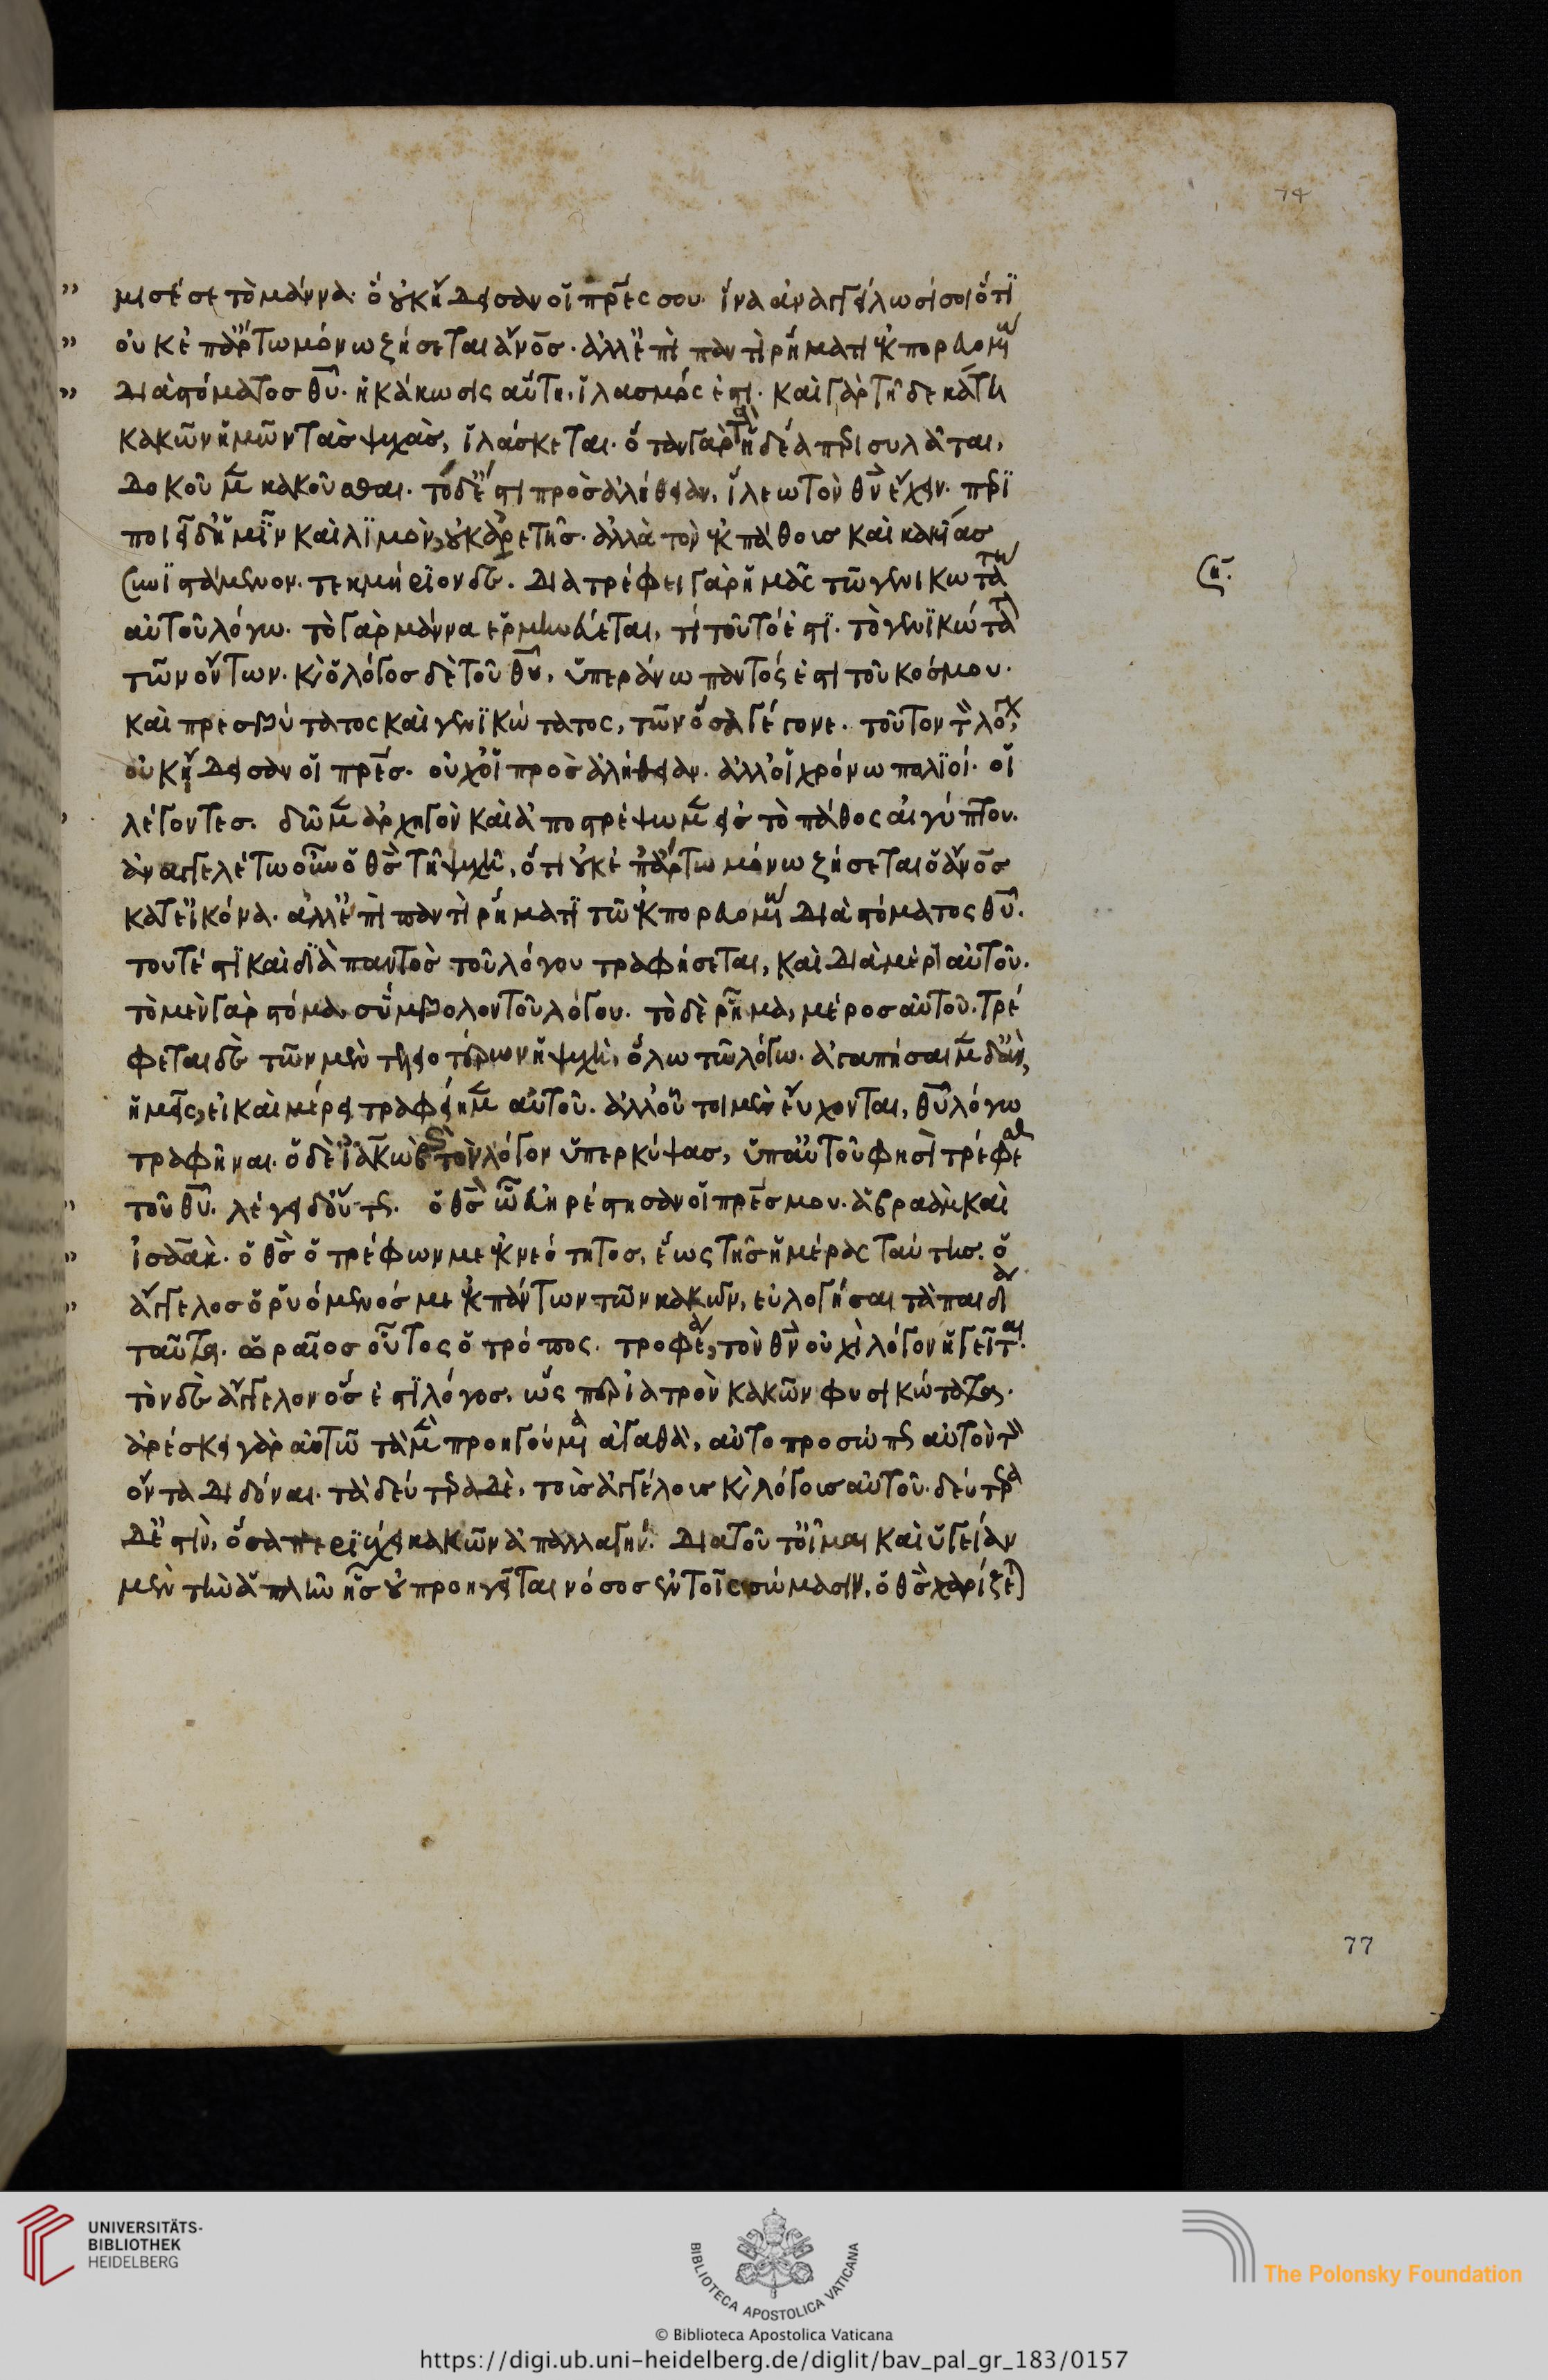 74
μισέ σε τὸ μάννα. ὃ οὐκ ᾔδεισαν οἱ πρ̅ες σου. ἵνα ἀναγγείλωσί σοι ὅτι
οὐκ ἐπ' ἄρτω μόνω ζήσεται ἄν̅ος. ἀλλ' ἐπὶ παντὶ ῥήματι ἐκπορευομένω
διὰ στόματος θυ̅. ἡ κάκωσις αὕτη, ἱλασμός ἐστι. καὶ γὰρ τῆ δεκάτη
κακῶν ἡμῶν τὰς ψυχὰς, ἱλάσκεται. ὅταν γὰρ τὰ ἡδέα περισυλᾶται,
δοκοῦμεν κακοῦσθαι. τὸ δ' ἔστι πρὸς ἀλήθειαν, ἵλεω τὸν θν̅ ἔχειν. περι
ποιεῖ δ' ἡμῖν καὶ λιμὸν, οὐκ ἀρετῆς. ἀλλὰ τὸν ἐκ πάθους καὶ κακίας
συνιστάμενον. τεκμήριον δέ. διατρέφει γὰρ ἡμᾶς τῶ γενικωτάτω
αὐτοῦ λόγω. τὸ γὰρ μάννα ἑρμηνεύεται, τί τοῦτό ἐστι. τὸ γενικώτατον
τῶν ὄντων. καὶ ὁ λόγος δὲ τοῦ θυ̅, ὑπεράνω παντός ἐστι τοῦ κόσμου.
καὶ πρεσβύτατος καὶ γενικώτατος, τῶν ὅσα γέγονε. τοῦτον τὸν λόγον,
οὐκ ᾔδεισαν οἱ πρ̅ες. οὐχ οἱ πρὸς ἀλήθειαν. ἀλλ' οἱ χρόνω πολιοί. οἱ
λέγοντες. δῶμεν ἀρχηγὸν καὶ ἀποστρέψωμεν εἰς τὸ πάθος αἰγύπτου.
ἀναγγελέτω οὖν ὁ θς̅ τῆ ψυχῆ, ὅτι οὐκ ἐπ' ἄρτω μόνω ζήσεται ὁ ἄν̅ος
κατ' εἰκόνα. ἀλλ' ἐπὶ παντὶ ῥήματι τῶ ἐκπορευομένω διὰ στόματος θυ̅.
τουτέστι καὶ διὰ παντὸς τοῦ λόγου τραφήσεται, καὶ διὰ μέρους αὐτοῦ.
τὸ μὲν γὰρ στόμα, σύμβολον τοῦ λόγου. τὸ δὲ ῥῆμα, μέρος αὐτοῦ. τρέ
φεται δὲ τῶν μὲν τελειοτέρων ἡ ψυχὴ, ὅλω τῶ λόγω. ἀγαπήσαιμεν δ' ἂν,
ἡμεῖς, εἰ καὶ μέρει τραφείημεν αὐτοῦ. ἀλλ' οὗτοι μὲν εὔχονται, θυ̅ λόγω
τραφῆναι. ὁ δὲ ἰακὼβ καὶ τὸν λόγον ὑπερκύψας, ὑπ' αὐτοῦ φησὶ τρέφεσθαι
τοῦ θυ̅. λέγει δ' οὕτως. ὁ θς̅ ὧ εὐηρέστησαν οἱ πρ̅ες μου. ἁβραὰμ καὶ
ἰσαάκ. ὁ θς̅ ὁ τρέφων με ἐκ νεότητος, ἕως τῆς ἡμέρας ταύτης. ὁ
ἄγγελος ὁ ῥυόμενός με ἐκ πάντων τῶν κακῶν, εὐλογήσαι τὰ παιδία
ταῦτα. ὡραῖος οὗτος ὁ τρόπος. τροφέα, τὸν θν̅ οὐχὶ λόγον ἡγεῖται.
τὸν δὲ ἄγγελον ὅς ἐστι λόγος, ὡς περ ἰατρὸν κακῶν φυσικώτατα.
ἀρέσκει γὰρ αὐτῶ τὰ μὲν προηγούμενα ἀγαθὰ, αὐτοπροσώπως αὐτὸν τὸν
ὄντα διδόναι. τὰ δεύτερα δὲ, τοῖς ἀγγέλοις καὶ λόγοις αὐτοῦ. δεύτερα
δ' ἐστὶν, ὅσα περιέχει κακῶν ἀπαλλαγήν. διὰ τοῦτ' οἶμαι καὶ ὑγείαν
μὲν τὴν ἁπλῆν ἧς οὐ προηγεῖται νόσος ἐν τοῖς σώμασιν, ὁ θς̅ χαρίζεται
77
UNIVERSITÄTS-
BIBLIOTHEK
HEIDELBERG
BIBLIOTECA APOSTOLICA VATICANA
© Biblioteca Apostolica Vaticana
The Polonsky Foundation
https://digi.ub.uni-heidelberg.de/diglit/bav_pal_gr_183/0157